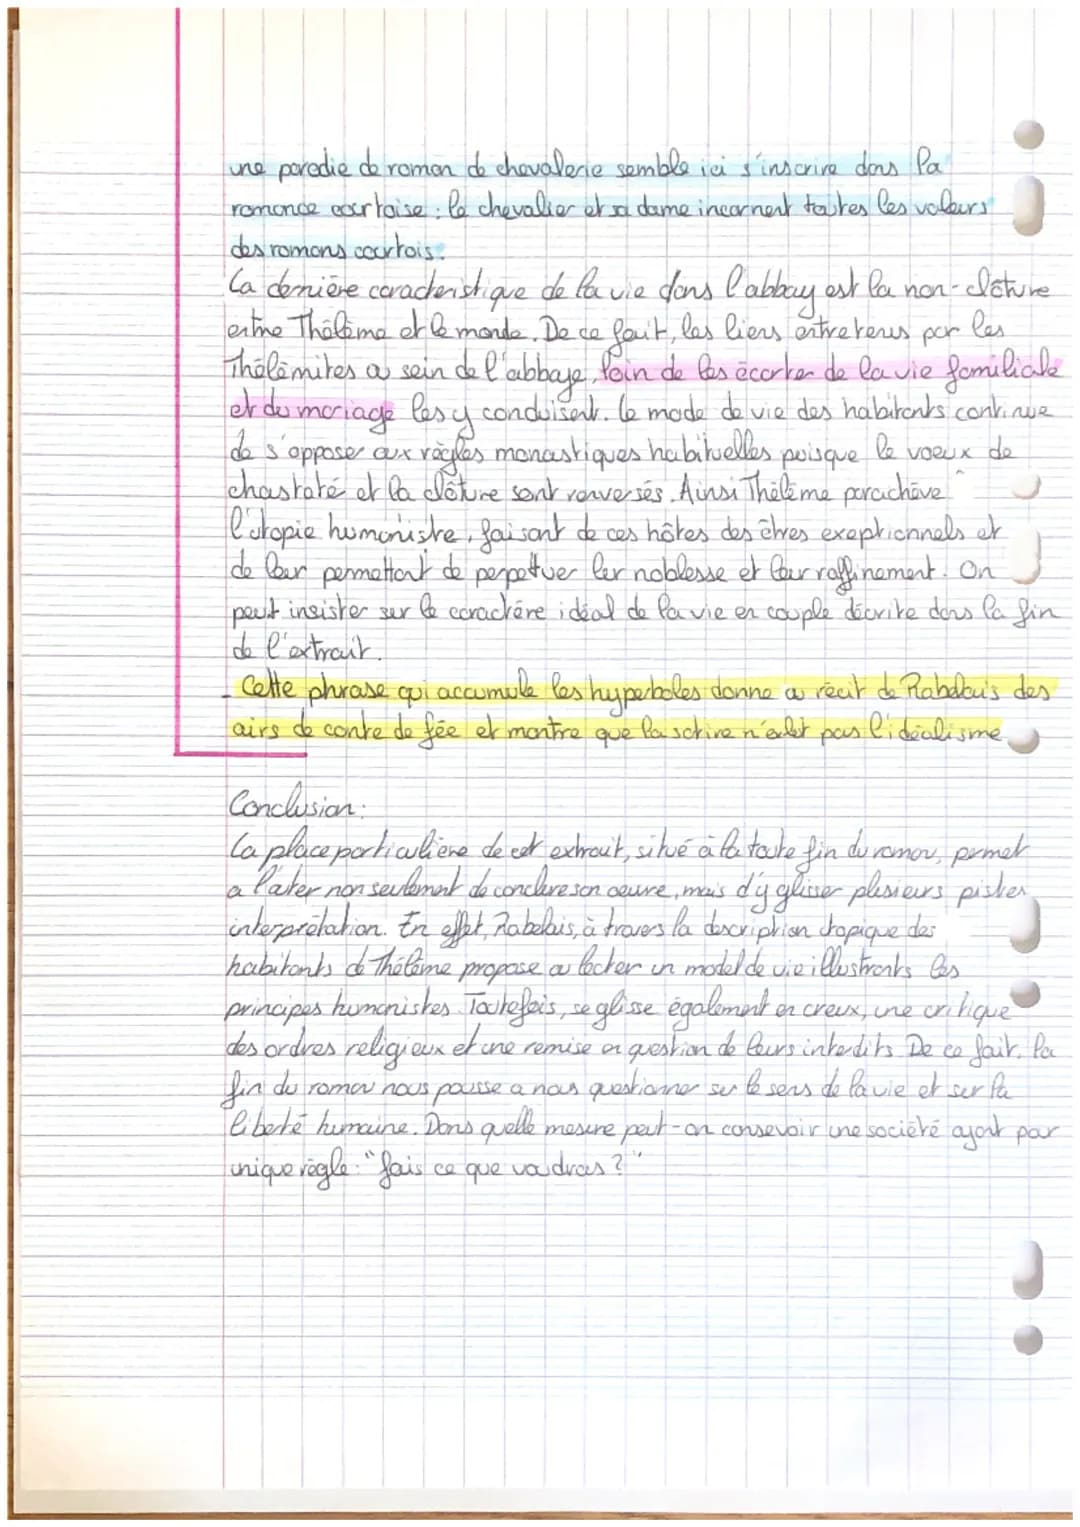 une parodie de roman de chevalerie semble ici s'inscrire dans la
romance courtoise : le chevalier et sa dame incarnent toutes les valeurs
des romans courtois.
La dernière caracteristique de la vie dans l'abbay est la non-clôture
entre Thélème et le monde. De ce fait, les liens entretenus par les
Thélèmites au sein de l'abbaye, loin de les écarter de la vie familiale
et du mariage les y conduisent. Le mode de vie des habitants continue
de s'opposer aux règles monastiques habituelles puisque le voeux de
chasteté et la clôture sont renversés. Ainsi Thélème parachève
l'utopie humaniste, faisant de ces hôtes des êtres exeptionnels et
de leur permettant de perpetuer leur noblesse et leur raffinement. On
peut insister sur le caractère idéal de la vie en couple décrite dans la fin
de l'extrait.
- Cette phrase qui accumule les hyperboles donne au récit de Rabelais des
airs de conte de fée et montre que la satire n'exlut pas l'idéalisme.
Conclusion :
La place particulière de cet extrait, situé à la toute fin du roman, permet
a l'auter non seulement de conclure son oeuvre, mais d'y glisser plusieurs pistes
interprétation. En effet, Rabelais, à travers la description utopique des
habitants de Thélème propose au lecter un model de vie illustrants les
principes humanistes. Toutefois, se glisse également en creux, une critique
des ordres religieux et une remise en question de leurs interdits. De ce fait, la
fin du roman nous pousse a nous questionner sur le sens de la vie et sur la
liberté humaine. Dans quelle mesure peut-on consevoir une société ayant pour
unique règle : "fais ce que voudras ?"